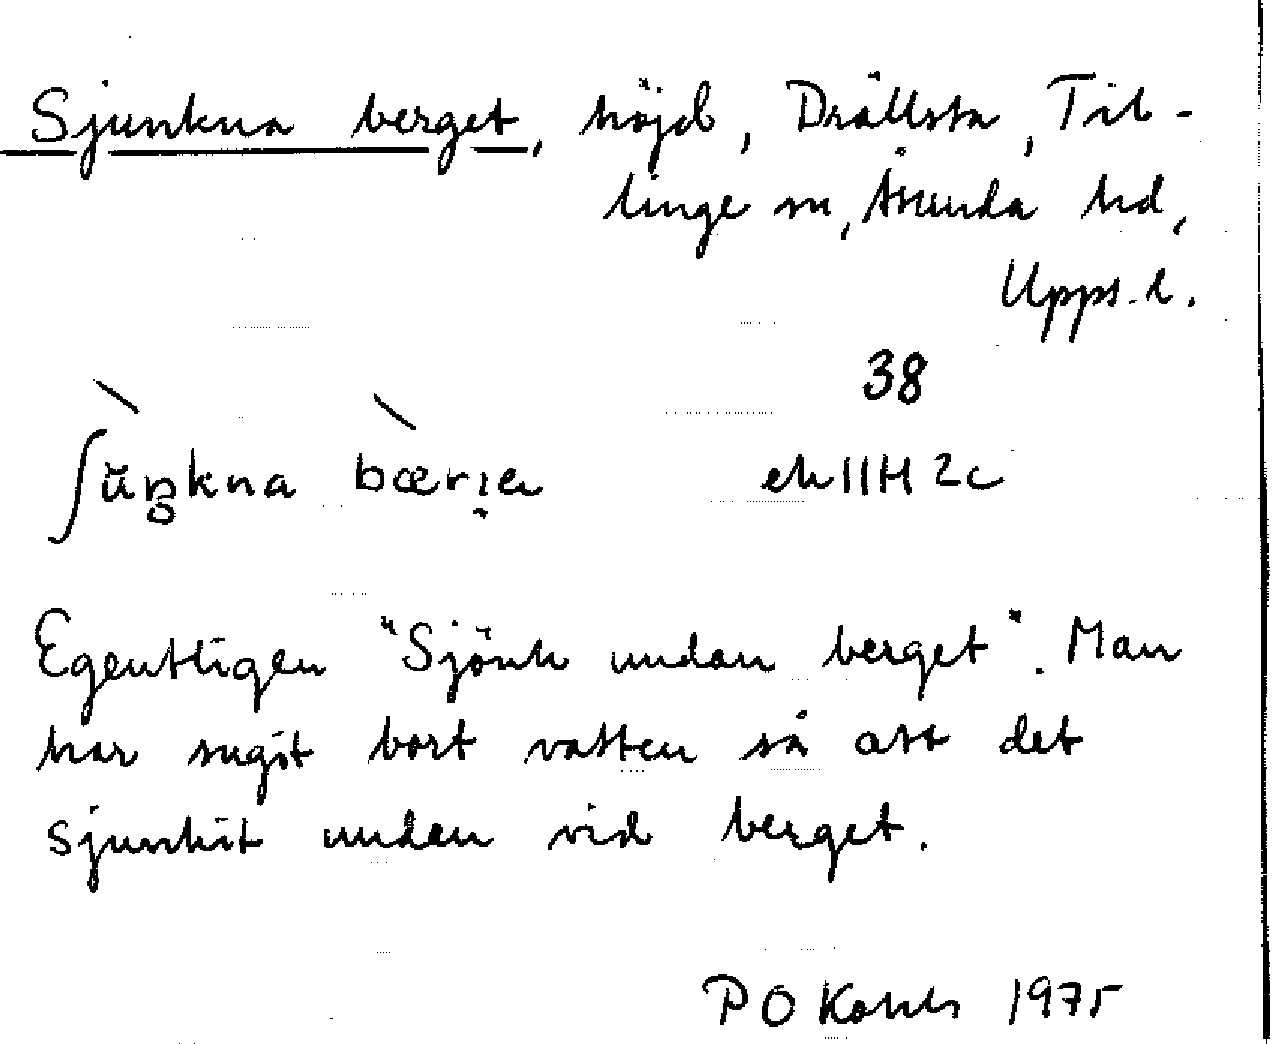 Sjunkna berget, höjd, Drällsta, Til-
linge sn, Åsunda hd,
Upps. l.
38
ʃŭŋkna bærjen ek 11H 2c
Egentligen "Sjönk undan berget". Man
har sugit bort vatten så att det
sjunkit undan vid berget.
P O 1975